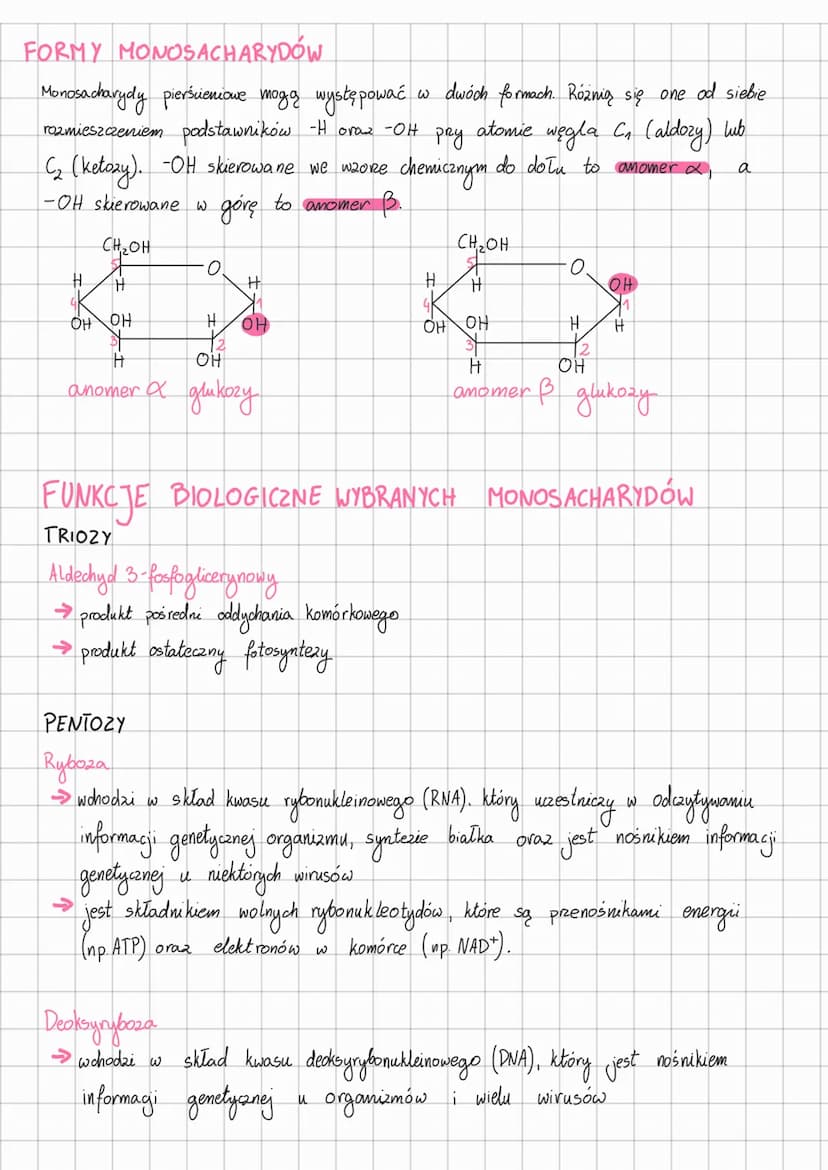 FORMY MONOSACHARYDÓW
Monosacharydy pierścieniowe mogą występować w dwóch formach. Różnią się one od siebie
rozmieszczeniem podstawników -H oraz -OH przy atomie węgla C₁ (aldozy) lub
C₂ (ketozy). -OH skierowane we wzorze chemicznym do dołu to anomer α, a
-OH skierowane w górę to anomer β.
CH₂OH CH₂OH
5 O 5 O
H H H H H OH
4 1 4 1
OH OH H OH OH OH H H
3 2 3 2
H OH H OH
anomer α glukozy anomer β glukozy
FUNKCJE BIOLOGICZNE WYBRANYCH MONOSACHARYDÓW
TRIOZY
Aldechyd 3-fosfoglicerynowy
→ produkt pośredni oddychania komórkowego
→ produkt ostateczny fotosyntezy
PENTOZY
Ryboza
→ wchodzi w skład kwasu rybonukleinowego (RNA), który uczestniczy w odczytywaniu
informacji genetycznej organizmu, syntezie białka oraz jest nośnikiem informacji
genetycznej u niektórych wirusów
→ jest składnikiem wolnych rybonukleotydów, które są przenośnikami energii
(np. ATP) oraz elektronów w komórce (np. NAD⁺).
Deoksyryboza
→ wchodzi w skład kwasu deoksyrybonukleinowego (DNA), który jest nośnikiem
informacji genetycznej u organizmów i wielu wirusów